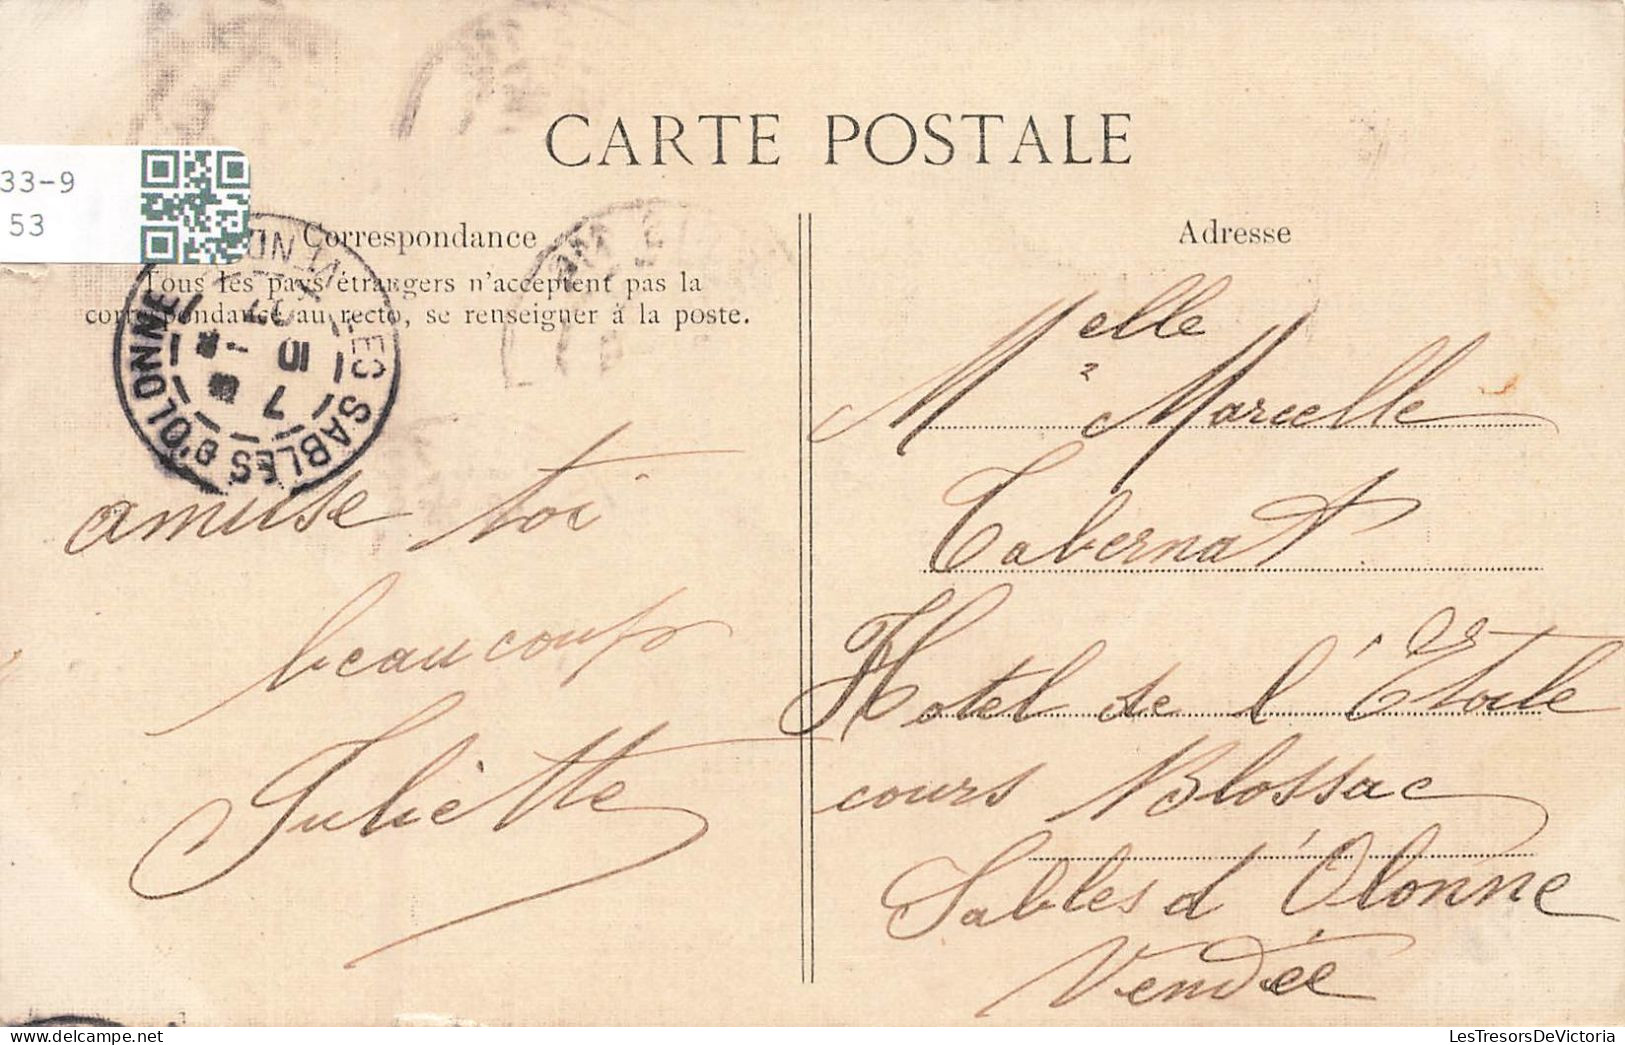 CARTE POSTALE
33-9
53
Correspondance
Tous les pays étrangers n'acceptent pas la
correspondance au recto, se renseigner à la poste.
LES SABLES D'OLONNE
amuse toi
beaucoup
Juliette
Adresse
Melle Marcelle
Tabernat
Hotel de l'Etoile
cours Blossac
Sables d'Olonne
Vendée
LesTresorsDeVictoria